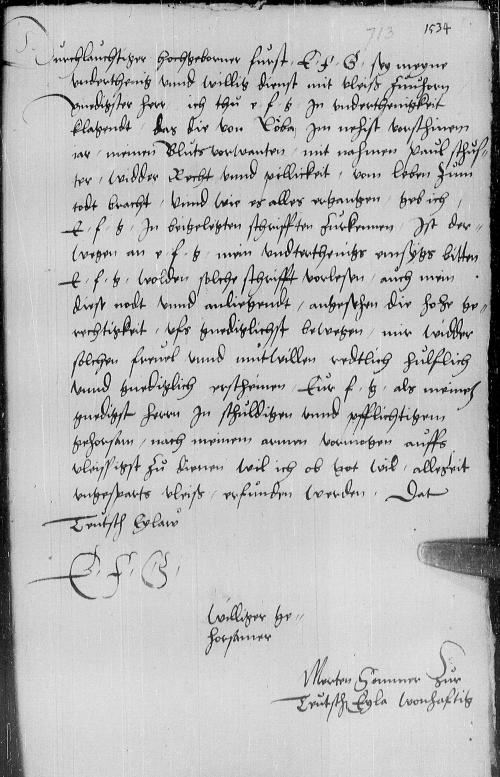 713 1534
Durchlauchtiger hochgeborner furst E F G sey meyne
underthenig unnd willig dienst mit vleiß zuuhorn
gnedigster herr ich thu e f g In underthenigkeit
klagendt das die von Loba Im nehst vorschinenn
iar meinen Bluts vorwanten mit nahmen paul schus-
ter widder Recht unnd pillickeit vom leben zum
todt bracht unnd wie es alles ergangen hab ich
E f g In beigelegten schrifften Ist der-
wegen an e f g mein undterthenigs bitten
E f g wolden solche schrifft vorlesen auch mein
diese nodt unnd anliegendt angesehen die hohe ge-
rechtigkeit uffs gnediglichst bewegen mir widder
solchen freuel unnd mutwillen redtlich hulfflich
unnd gnediglich erscheinen Eur f g als meinem
gnedigst herrn In schuldigen unnd pfflichtigem
gehorsam nach meinem armen vormogen auffs
vleissigst zu dienen wil ich ob got wil allezeit
ungesparts vleiß erfunden werden Dat
Teutsch Eylaw
E F G
williger ge-
horsamer
Merten Sommer zur
Teutsch Eyla wonhafftig